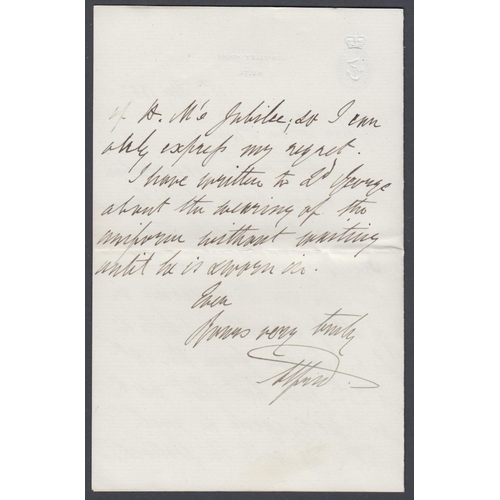 of H. M's Jubilee; so I can
only express my regret.
I have written to Ld George
about the wearing of the
uniform without waiting
until he is sworn in.
Ever
Yours very truly